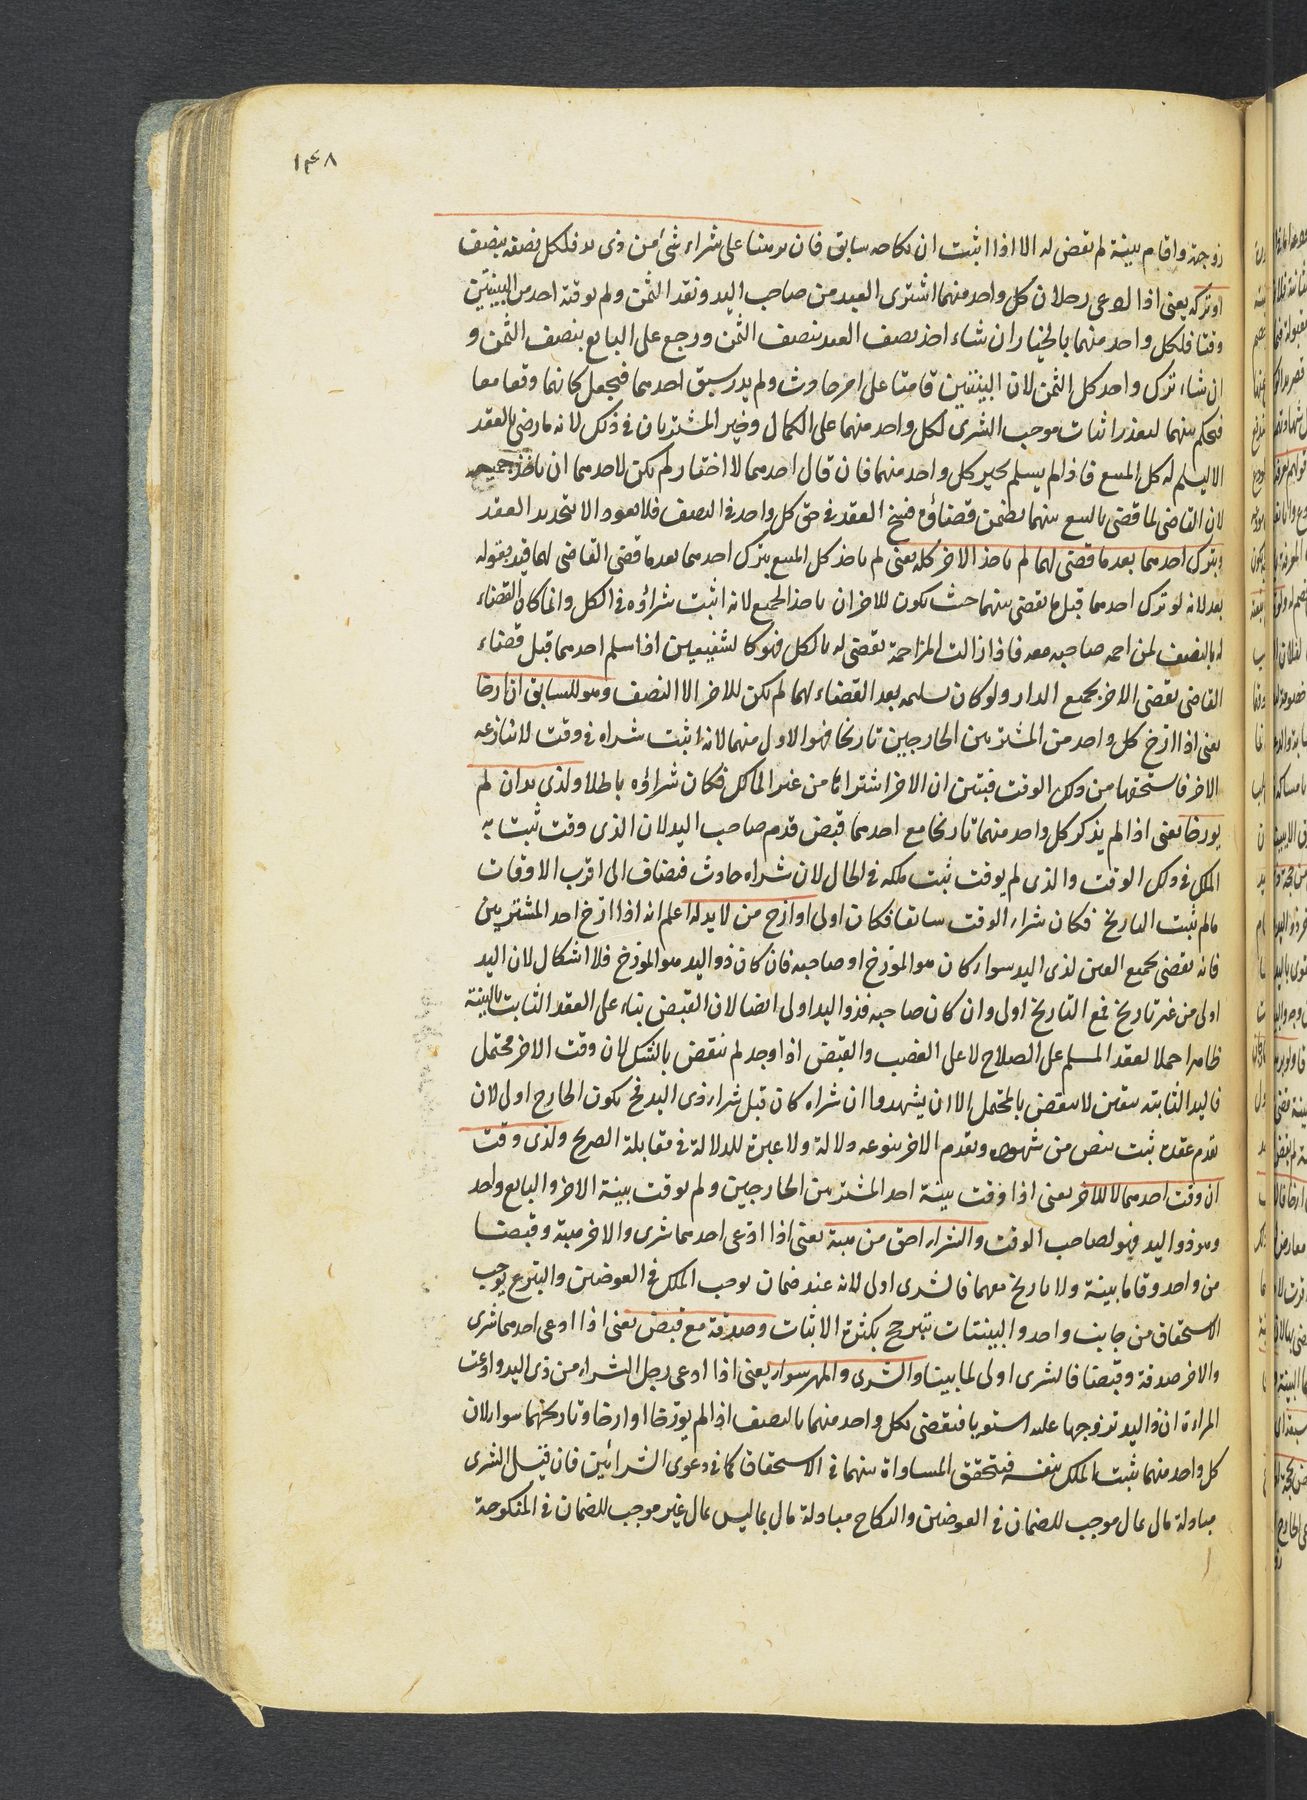 ١٤٨
زوجته واقام بينة لم يقض له الا اذا اثبت ان نكاحه سابق فان برهنا على شراء شئ من ذى يد فلكل نصفه بنصف
او تركه يعنى اذا ادعى رجلان كل واحد منهما اشترى العبد من صاحب اليد ونقد الثمن ولم يوقته احد من البينتين
وقتا فلكل واحد منهما بالخيار ان شاء اخذ نصف العبد بنصف الثمن ورجع على البايع بنصف الثمن و
ان شاء ترك واحد كل الثمن لان البينتين قامتا على امر حادث ولم يدر سبق احدهما فيجعل كانهما وقعا معا
فيحكم بينهما لتعذر اثبات موجب الشرى لكل واحد منهما على الكمال وخير المشتريان فى ذلك لانه ما رضى بالعقد
الا ليسلم له كل المبيع فاذا لم يسلم يخير كل واحد منهما فان قال احدهما لا اختار لم يكن لاحدهما ان ياخذ جميعه
لان القاضى لما قضى بالبيع بينهما تضمن قضاؤه فسخ العقد فى حق كل واحد فى النصف فلا يعود الا بتجديد العقد
وبترك احدهما بعدما قضى لهما لم ياخذ الاخر كله يعنى لم ياخذ كل المبيع بترك احدهما بعدما قضى القاضى لهما قيد بقوله
بعد لانه لو ترك احدهما قبل ما يقضى بينهما حيث يكون للاخر ان ياخذ الجميع لانه اثبت شراؤه فى الكل وانما كان القضاء
له بالنصف لمزاحمه صاحبه معه فاذا زالت المزاحمة يقضى له بالكل فهو كالشفيعين اذا سلم احدهما قبل قضاء
القاضى يقضى الاخر بجميع الدار ولو كان سلمه بعد القضاء لهما لم يكن للاخر الا النصف وهو للسابق ان ارخا
يعنى اذا ارخ كل واحد من المشتريين الخارجين تاريخا فهو الاول منهما لانه اثبت شراه فى وقت لا ينازعه
الاخر فاستحقها من ذلك الوقت فتبين ان الاخر اشتراها من غير المالك فكان شراؤه باطلا ولذى يد ان لم
يورخا يعنى اذا لم يذكر كل واحد منهما تاريخا مع احدهما قبض قدم صاحب اليد لان الذى وقت ثبت به
الملك فى ذلك الوقت والذى لم يوقت ثبت ملكه فى الحال لان شراه حادث فيضاف الى اقرب الاوقات
مالم يثبت التاريخ فكان شراء الوقت سابقا فكان اولى او ارخ من لا يد له اعلم انه اذا ارخ احد المشتريين
فانه يقضى بجميع العين لذى اليد سواء كان هو المؤرخ او صاحبه فان كان ذو اليد هو المؤرخ فلا اشكال لان اليد
اولى من غير تاريخ فمع التاريخ اولى وان كان صاحبه فذو اليد اولى ايضا لان القبض بناء على العقد الثابت بالبينة
ظاهرا حملا لعقد المسلم على الصلاح لا على الغصب والقبض اذا وجد لم ينقض بالشك لان وقت الاخر محتمل
فاليد الثابتة بيقين لا تنقض بالمحتمل الا ان يشهدوا ان شراه كان قبل شراء ذى اليد فح يكون الخارج اولى لان
تقدم عقده ثبت بنص من شهوده وتقدم الاخر بنوعه دلالة ولا عبرة للدلالة فى مقابلة الصريح ولذى وقت
ان وقت احدهما لا للاخر يعنى اذا وقت بينة احد المشتريين الخارجين ولم يوقت بينة الاخر والبايع واحد
وهو ذو اليد فهو لصاحب الوقت والشراء احق من هبة يعنى اذا ادعى احدهما شرى والاخر هبة وقبضتا
من واحد وقاما بينة ولا تاريخ معهما فالشرى اولى لانه عند ضمان يوجب الملك فى العوضين والتبرع يوجب
الاستحقاق من جانب واحد والبينات تترجح بكثرة الاثبات وصدقة مع قبض يعنى اذا ادعى احدهما شرى
والاخر صدقة وقبضتا فالشرى اولى لما بينا والشرى والمهر سواء يعنى اذا ادعى رجل الشراء من ذى اليد وادعت
المراءة ان ذا اليد تزوجها عليه استويا فيقضى لكل واحد منهما بالنصف اذا لم يؤرخا او ارخا وتاريخهما سواء لان
كل واحد منهما يثبت الملك بنفسه فيتحقق المساواة بينهما فى الاستحقاق كما فى دعوى الشرائين فان قيل الشرى
مبادلة مال بمال موجب للضمان فى العوضين والنكاح مبادلة مال بما ليس بمال غير موجب للضمان فى المنكوحة